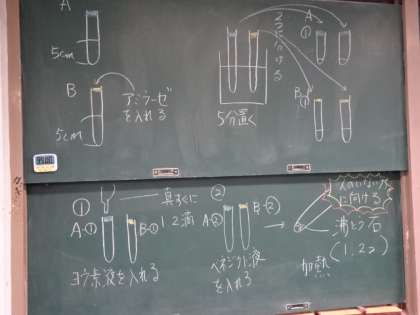 A
5cm
B
5cm
アミラーゼ
を入れる
5分置く
2つに分ける
A
①
B
①
①
真っすぐに
②
1,2滴
A-①
B-①
ヨウ素液を入れる
A-②
B-②
ベネジクト液
を入れる
人のいない方
に向ける
沸とう石
(1,2コ)
加熱